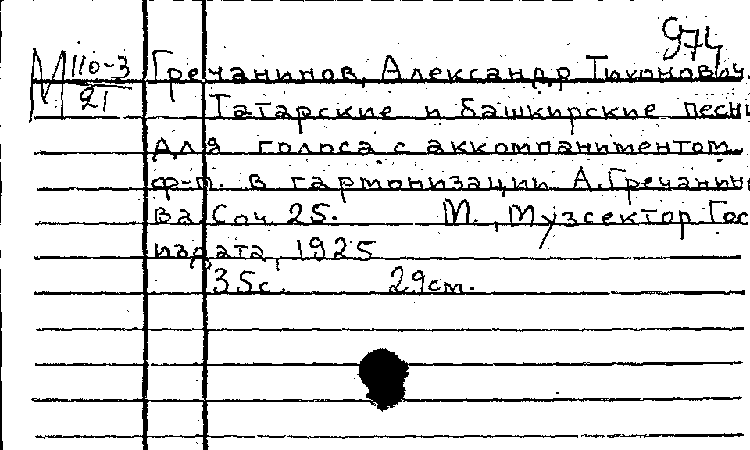 974
М 110-3 Гречанинов, Александр Тихонович.
21 Татарские и башкирские песни
для голоса с аккомпаниментом
ф-п. в гармонизации А.Гречанино
ва. Соч. 25. М., Музсектор Гос
издата, 1925
35с. 29см.